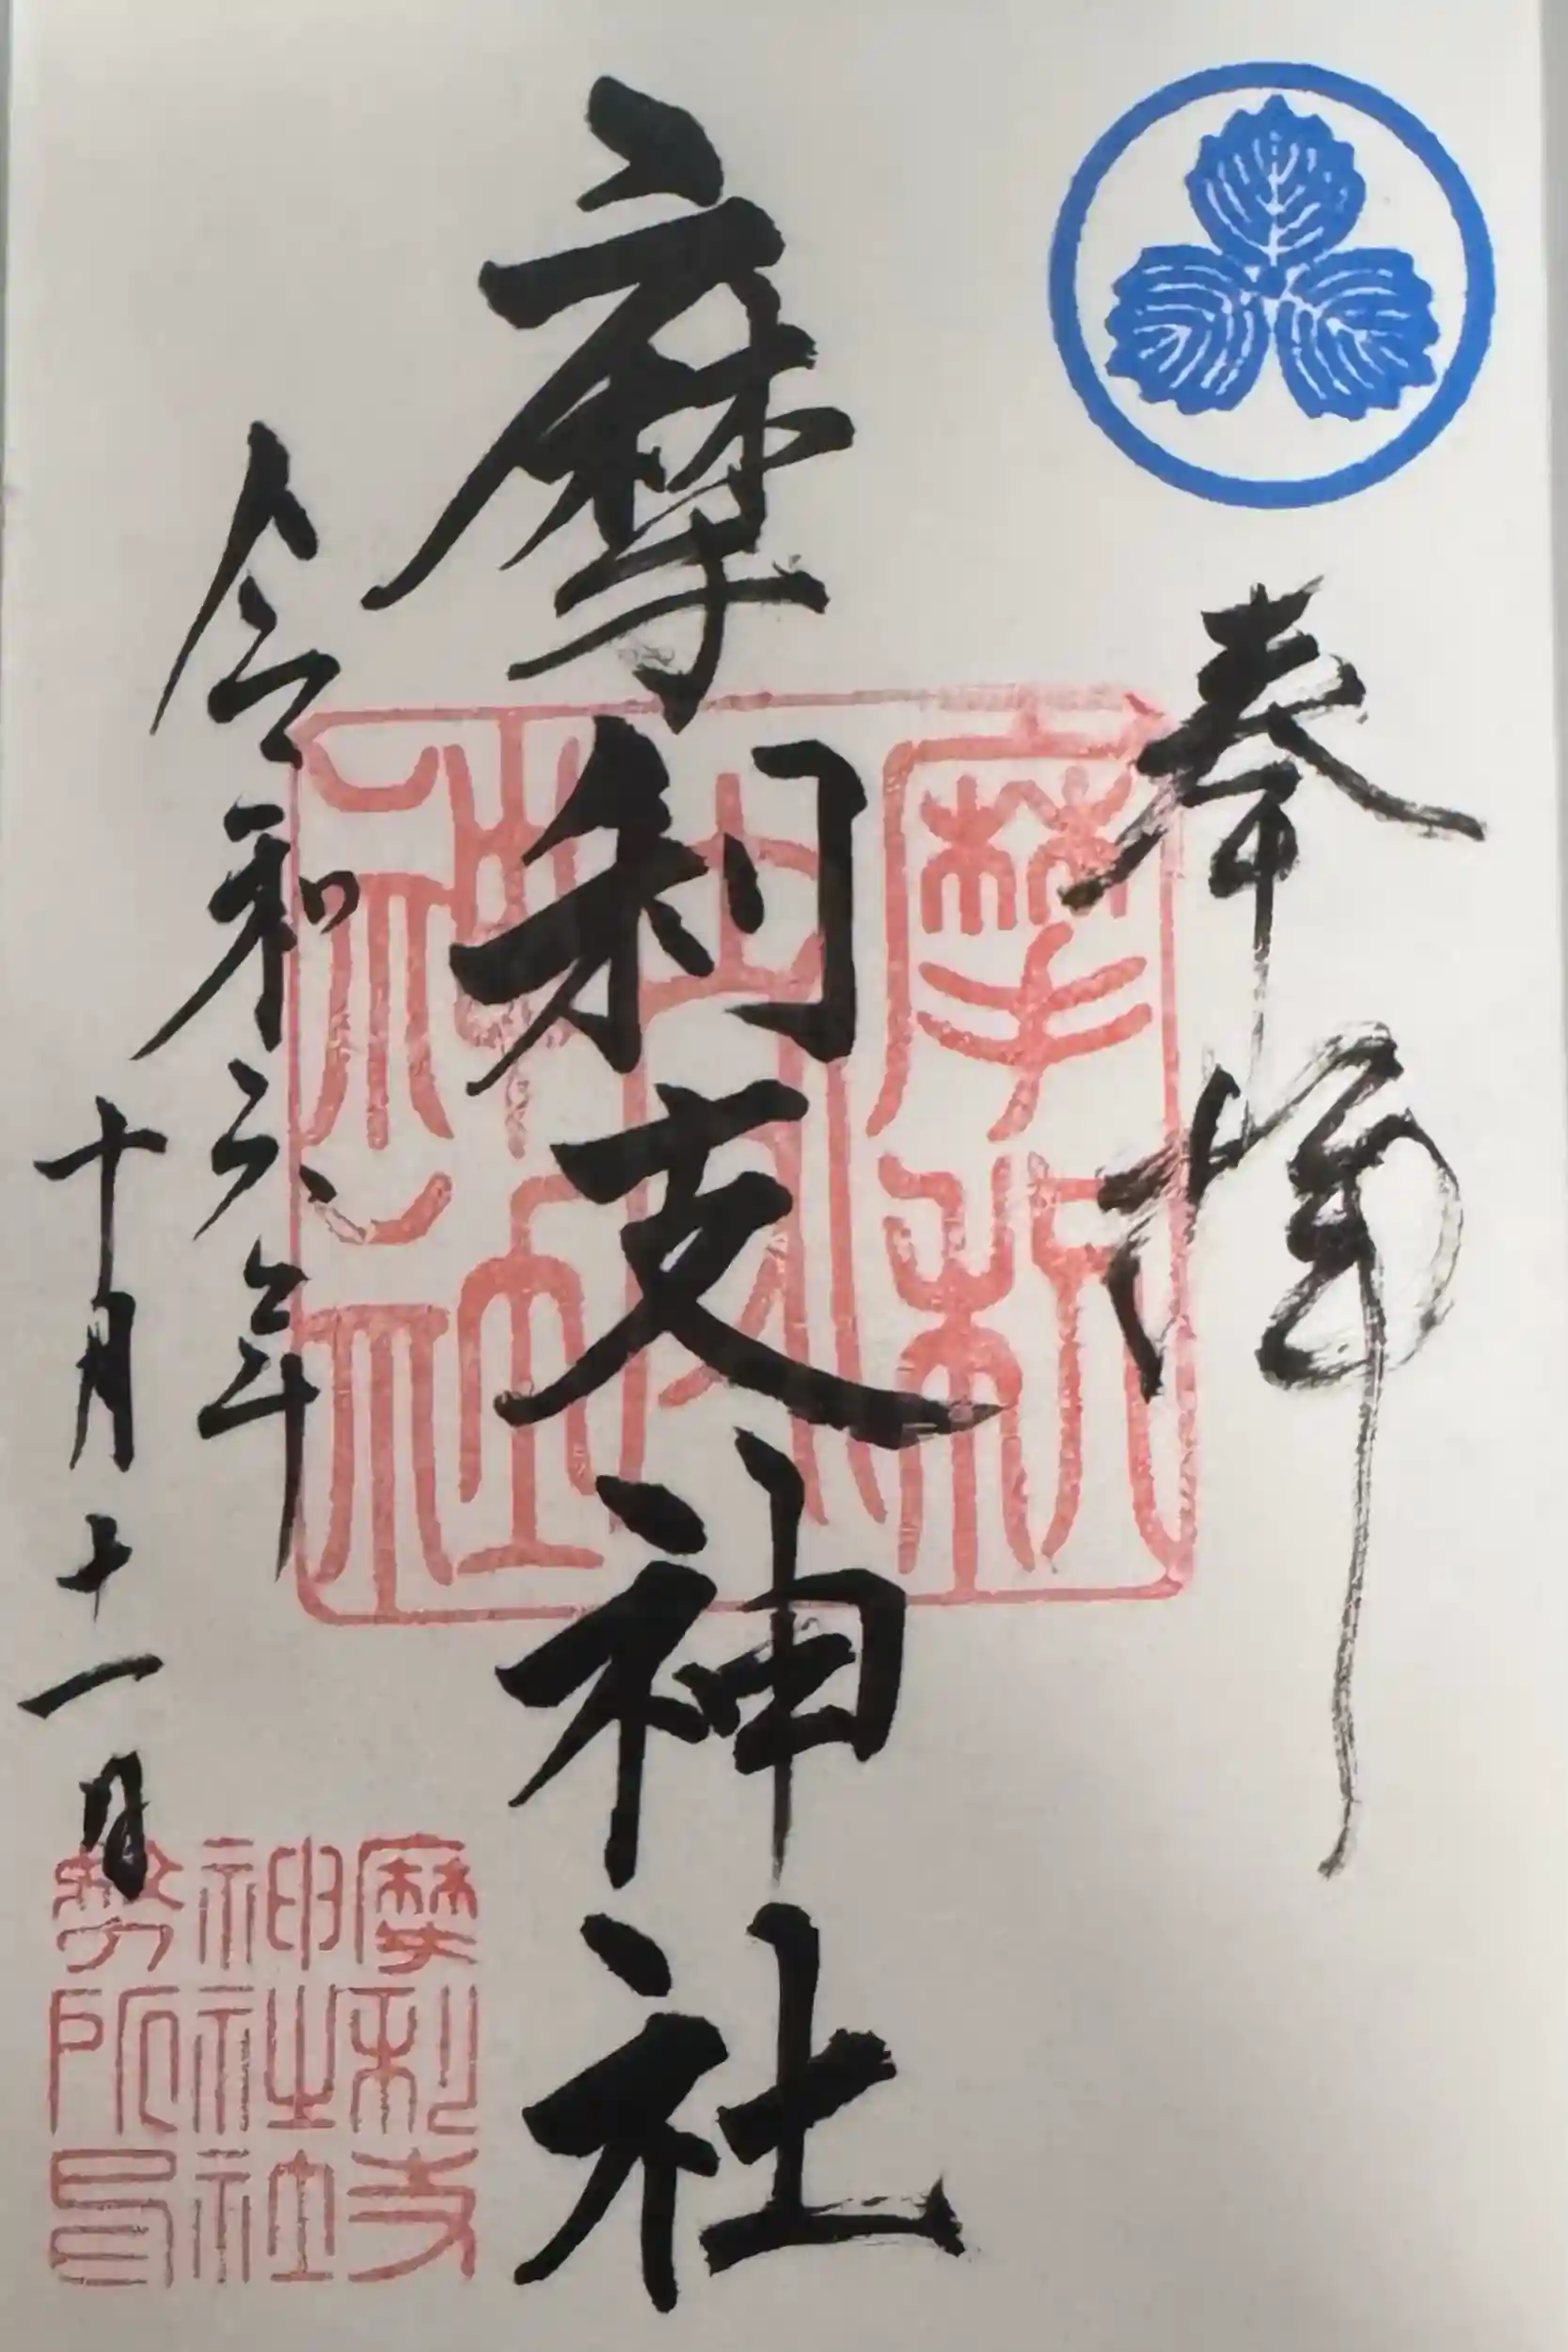 奉拝
摩利支神社
令和六年
十月十一日
摩利支
神社社
務所印